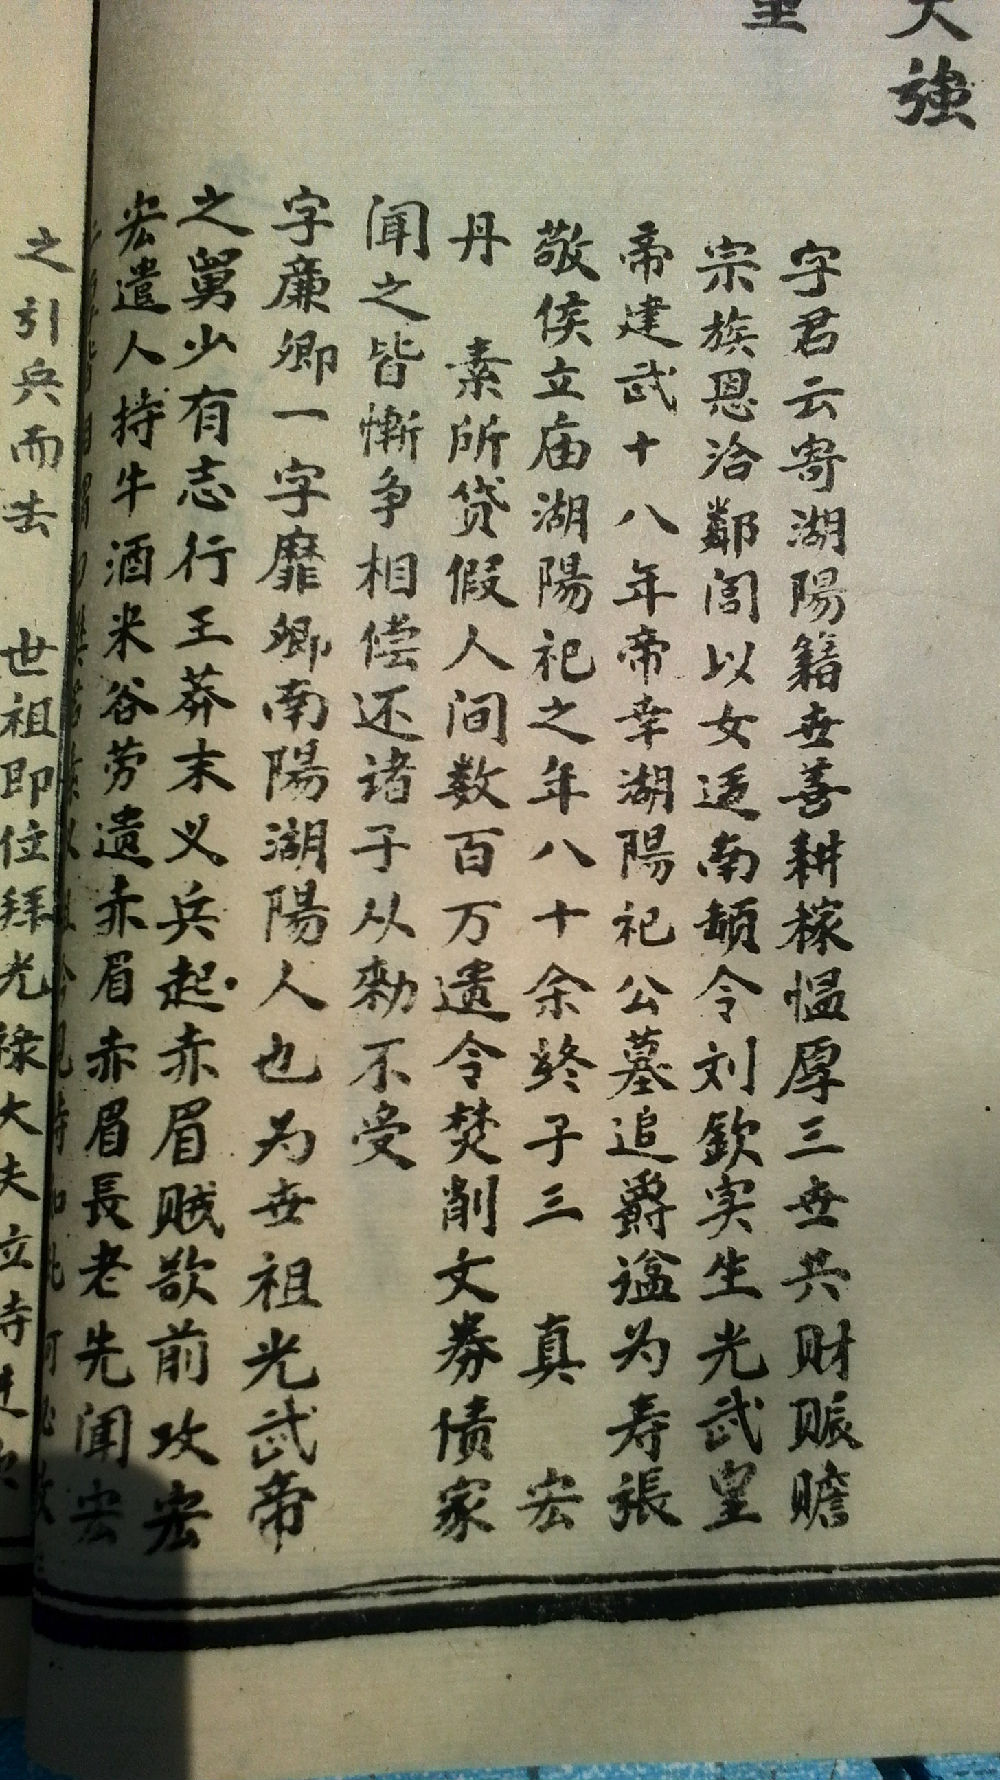 大強
字君云寄湖陽籍世善耕稼愠厚三世共财賑贍
宗族恩洽鄰闾以女适南頓令刘欽实生光武皇
帝建武十八年帝幸湖陽祀公墓追爵謚为寿張
敬侯立庙湖陽祀之年八十余終子三 真 宏
丹 素所贷假人间数百万遗令焚削文券债家
闻之皆慚争相偿还诸子从勑不受
字廉卿一字靡卿南陽湖陽人也为世祖光武帝
之舅少有志行王莽末义兵起赤眉贼欲前攻宏
宏遣人持牛酒米谷劳遗赤眉赤眉長老先闻宏
之引兵而去 世祖即位拜光禄大夫立寺